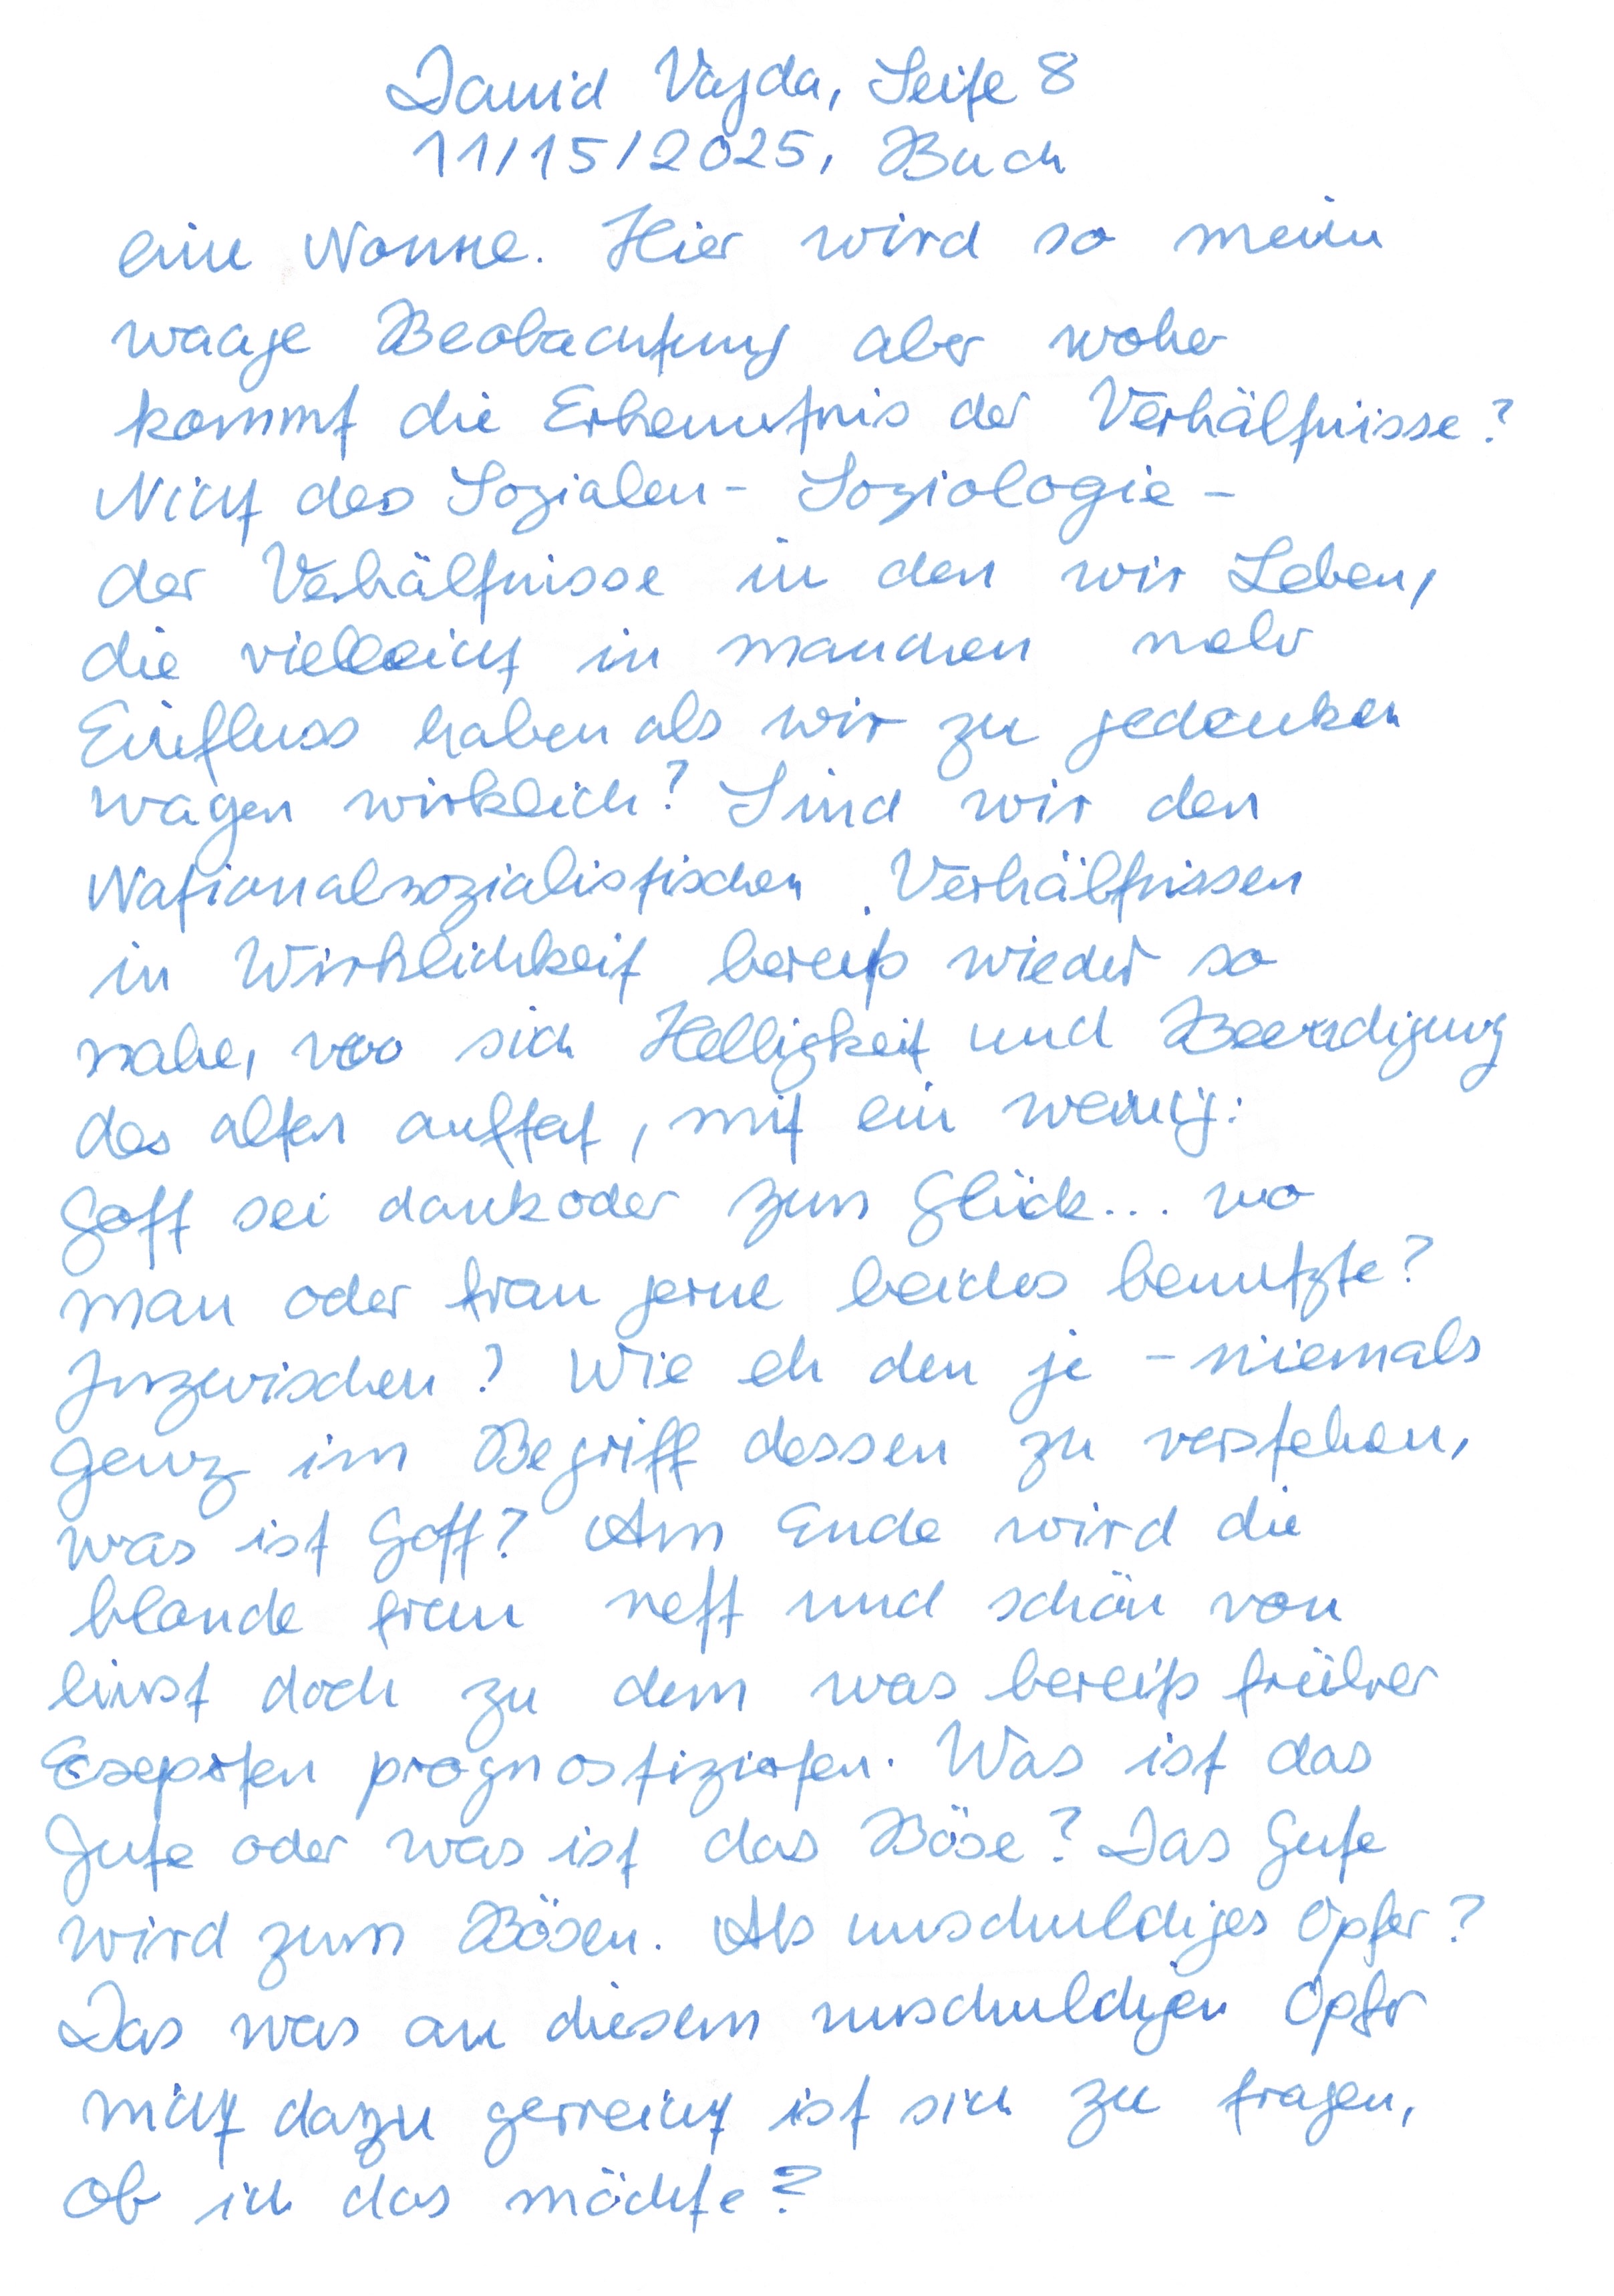 David Vajda, Seite 8
11/15/2025, Buch
eine Nonne. Hier wird so meine
waage Beobachtung aber woher
kommt die Erkenntnis der Verhältnisse?
Nicht des Sozialen - Soziologie -
der Verhältnisse in den wir Leben,
die vielleicht in manchen mehr
Einfluss haben als wir zu gedenken
wagen wirklich? Sind wir den
Nationalsozialistischen Verhältnissen
in Wirklichkeit bereits wieder so
nahe, wo sich Helligkeit und Beerdigung
des alten auftat, mit ein wenig:
Gott sei dank oder zum Glück... wo
man oder frau gerne beides benutzte?
Inzwischen? Wie eh den je - niemals
ganz im Begriff dessen zu verstehen,
was ist Gott? Am Ende wird die
blonde frau nett und schön von
einst doch zu dem was bereits früher
Experten prognostizierten. Was ist das
Gute oder was ist das Böse? Das Gute
wird zum Bösen. Als unschuldiges Opfer?
Das was an diesem unschuldigen Opfer
nicht dazu gerreicht ist sich zu fragen,
ob ich das möchte?